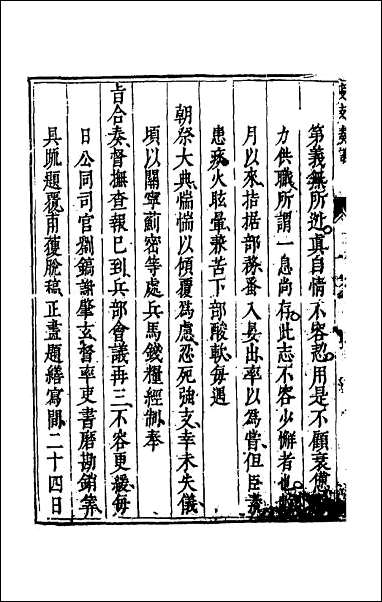 第義無所逃真自情不容忍用是不顧衰憊
力供職所謂一息尚存此志不容少懈者也
月以來拮据部務番入晏出率以為嘗但臣素
患痰火眩暈兼苦下部酸軟每遇
朝祭大典惴惴以傾覆為慮忍死強支幸未失儀
頃以關寧薊密等處兵馬錢糧經制奉
旨合奏督撫查報已到兵部會議再三不容更緩每
日公同司官劉鎬謝肇玄督率吏書磨勘銷筭
具疏題覆甫獲脫稿正畫題繕寫間二十四日